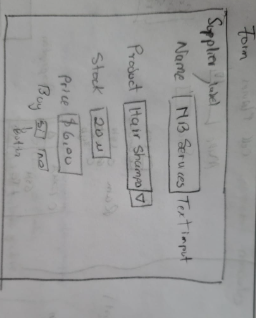 Form
Supplier label
Name NB Services Text input
Product Hair Shampo
Stock 20 u
Price $6,00
Buy